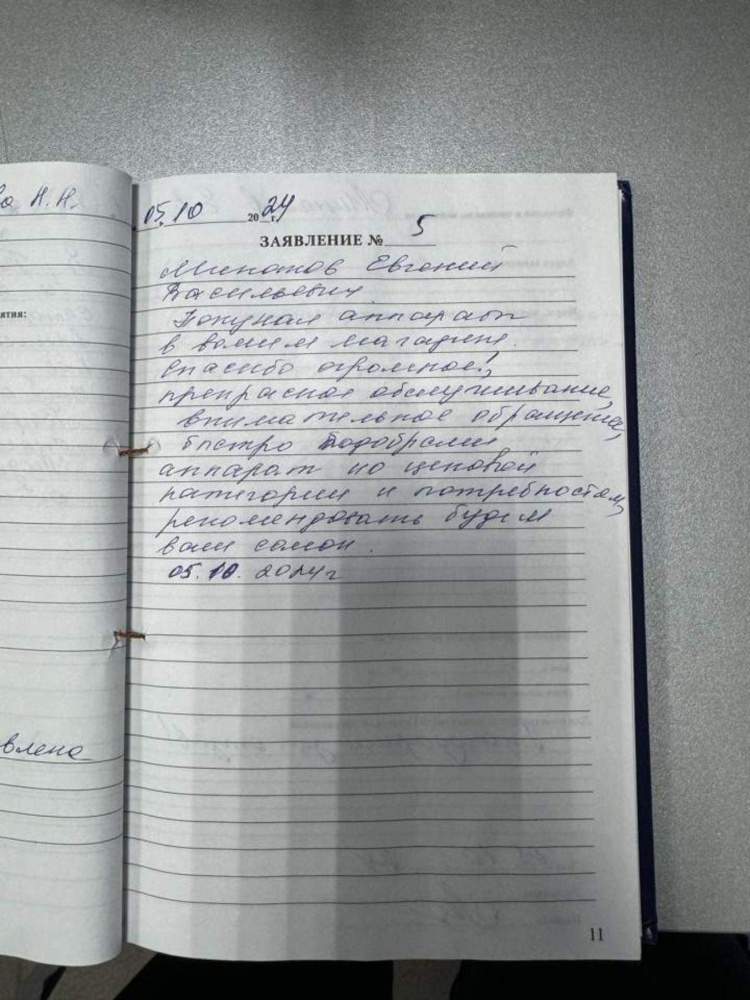 Н.Н.
ятия:
влена
05.10 2024 г.
ЗАЯВЛЕНИЕ № 5
Евгений
Васильевич
Покупал аппараты
в вашем магазине.
спасибо огромное!,
прекрасное обслуживание,
внимательное обращение,
быстро подобрали
аппарат по ценовой
категории и потребностям,
рекомендовать будем
ваш салон.
05.10.2024г
11